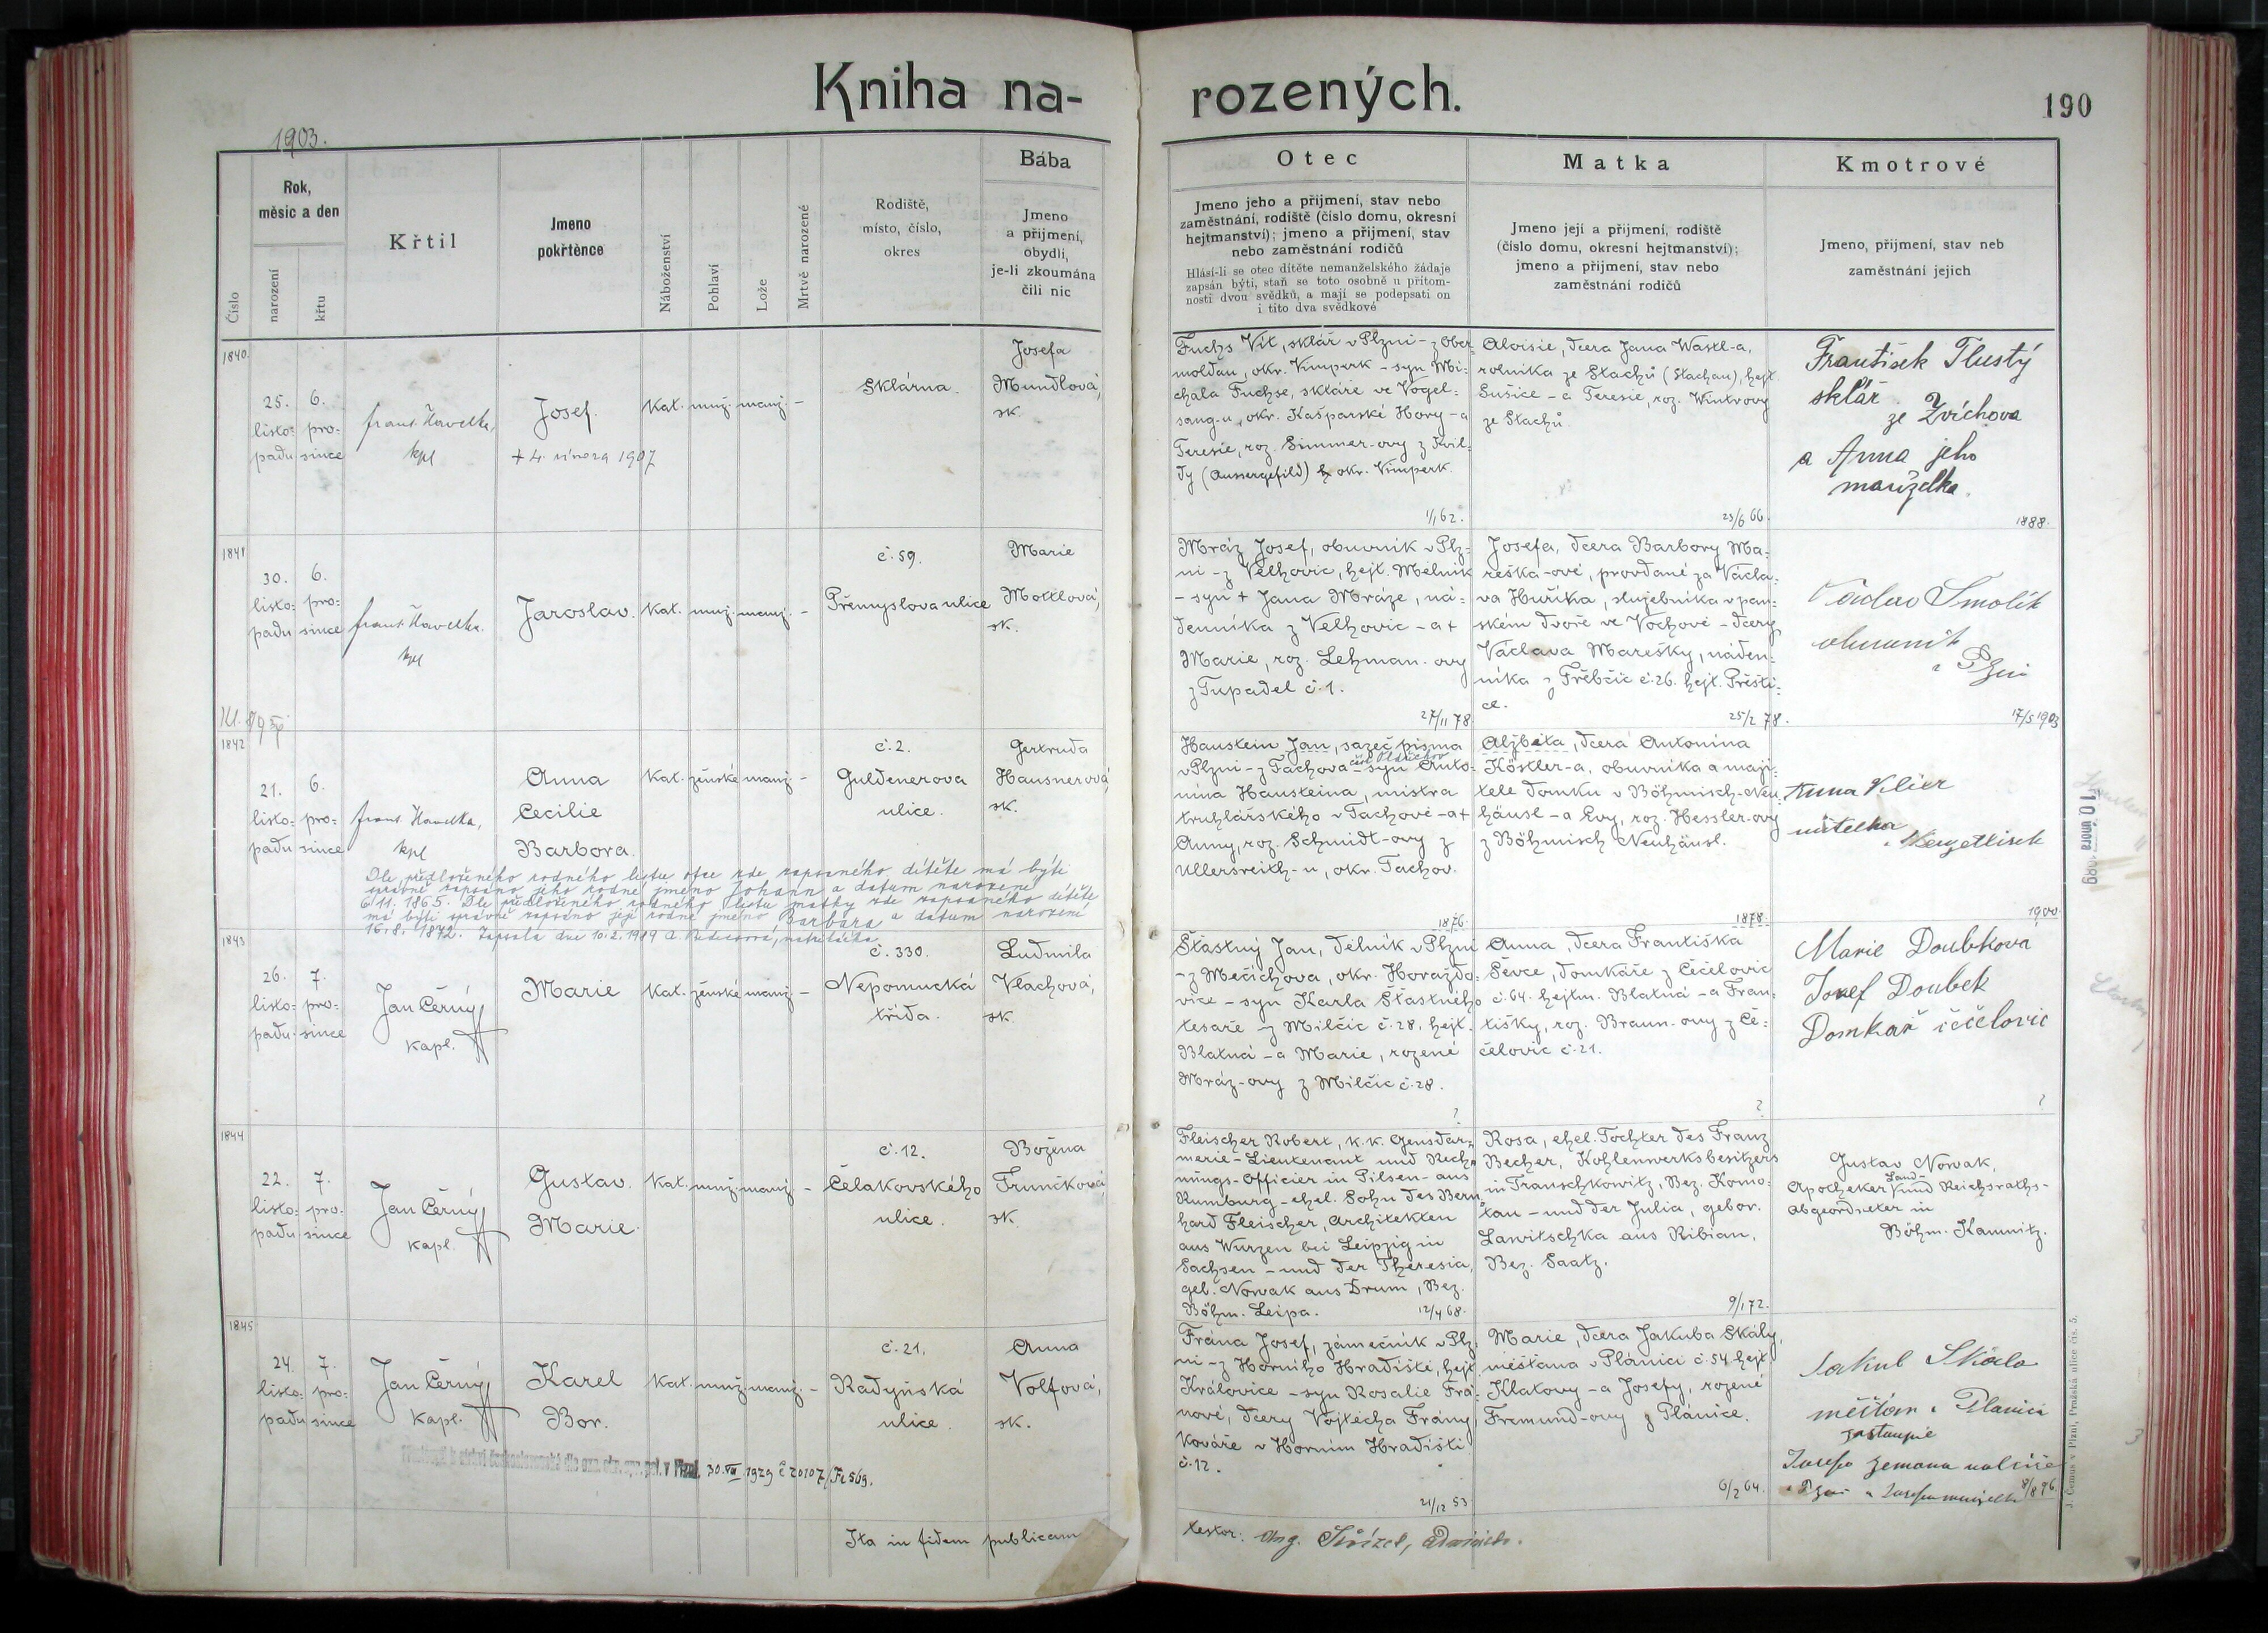 Kniha na-
rozených.
190
1903.
Číslo
Rok,
měsíc a den
narození
křtu
Křtil
Jmeno
pokřtěnce
Náboženství
Pohlaví
Lože
Mrtvě narozené
Rodiště,
místo, číslo,
okres
Bába
Jmeno
a přijmení,
obydlí,
je-li zkoumána
čili nic
Otec
Jmeno jeho a přijmení, stav nebo
zaměstnání, rodiště (číslo domu, okresní
hejtmanství); jmeno a přijmení, stav
nebo zaměstnání rodičů
Hlásí-li se otec dítěte nemanželského žádaje
zapsán býti, staň se toto osobně u přítom-
nosti dvou svědků, a mají se podepsati on
i tito dva svědkové
Matka
Jmeno její a přijmení, rodiště
(číslo domu, okresní hejtmanství);
jmeno a přijmení, stav nebo
zaměstnání rodičů
Kmotrové
Jmeno, přijmení, stav neb
zaměstnání jejich
1840.
25.
listo-
padu
6.
pro-
since
frant. Havelka,
kpl
Josef.
+ 4. února 1907
Kat. muž. manž. -
Sklárna.
Josefa
Mundlová,
zk.
Fuchs Vít, sklář v Plzni - z Ober-
moldau, okr. Vimperk - syn Mi-
chala Fuchse, skláře ve Vogel-
sang-u, okr. Kašparské Hory - a
Teresie, roz. Simmer-ovy z Kvil-
dy (Aussergefild) okr. Vimperk.
1/1 62.
Aloisie, dcera Jana Wastl-a,
rolníka ze Stachů (Stachau), hejt.
Sušice - a Teresie, roz. Wintrovy
ze Stachů.
23/6 66.
František Tlustý
sklář
ze Zvíchova
a Anna jeho
manželka.
1888.
1841
30.
listo-
padu
6.
pro-
since
frant. Havelka.
kpl
Jaroslav.
Kat. muž. manž. -
č. 59.
Přemyslova ulice
Marie
Mottlová,
zk.
Mráz Josef, obuvník v Plz-
ni - z Velhovic, hejt. Mělník
- syn + Jana Mráze, ná-
denníka z Velhovic - a +
Marie, roz. Lehman-ovy
z Tupadel č. 1.
27/11 78
Josefa, dcera Barbory Ma-
reška-ové, provdané za Václa-
va Huříka, služebníka v pan-
ském dvoře ve Vochově - dcery
Václava Marešky, náden-
níka z Třebčic č. 26. hejt. Přešti-
ce.
25/2 78.
Václav Smolík
obuvník
v Plzni
17/5 1903
1842
21.
listo-
padu
6.
pro-
since
frant. Havelka,
kpl
Anna
Cecilie
Barbora.
Kat. ženské manž. -
č. 2.
Guldenerova
ulice.
Gertruda
Hausnerová,
zk.
Haustein Jan, sazeč písma
v Plzni - z Tachova - syn Anto-
nína Hausteina, mistra
truhlářského v Tachově - a +
Anny, roz. Schmidt-ovy z
Ullersreith-u, okr. Tachov.
1876.
Alžběta, dcera Antonína
Köstler-a, obuvníka a maji-
tele domku v Böhmisch-Neu-
häusl - a Evy, roz. Hessler-ovy
z Böhmisch Neuhäusl.
1878.
Anna Klier
1900
Dle předloženého rodného listu otce zde zapsaného dítěte má býti
správně zapsáno jeho rodné jméno Johann a datum narození
6.11. 1865. Dle předloženého rodného listu matky zde zapsaného dítěte
má býti správně zapsáno její rodné jméno Barbara a datum narození
16.8. 1872. Zapsala dne 10.2.
1843
26.
listo-
padu
7.
pro-
since
Jan Černý
kapl.
Marie
Kat. ženské manž. -
č. 330.
Nepomucká
třída.
Ludmila
Vlachová,
zk.
Šťastný Jan, dělník v Plzni
- z Mečichova, okr. Horažďo-
vice - syn Karla Šťastného
tesaře z Milčic č. 28, hejt.
Blatná - a Marie, rozené
Mráz-ovy z Milčic č. 28.
?
Anna, dcera Františka
Ševce, domkáře z Čečelovic
č. 64. hejtm. Blatná - a Fran-
tišky, roz. Braun-ovy z Če-
čelovic č. 21.
?
Marie Doubková
Josef Doubek
Domkář čečelovic
?
1844
22.
listo-
padu
7.
pro-
since
Jan Černý
kapl.
Gustav
Marie.
Kat. muž. manž. -
č. 12.
Čelakovského
ulice.
Božena
Trunčková,
zk.
Fleischer Robert, k. k. Gensdar-
merie-Lieutenant und Rech-
nungs-Officier in Pilsen - aus
Rumburg - ehel. Sohn des Bern-
hard Fleischer, Architekten
aus Wurzen bei Leipzig in
Sachsen - und der Theresia,
geb. Nowak aus Drum, Bez.
Böhm. Leipa.
12/4 68.
Rosa, ehel. Tochter des Franz
Becher, Kohlenwerksbesitzers
in Transchkowitz, Bez. Komo-
tau - und der Julia, gebor.
Lawitschka aus Ribian,
Bez. Saatz.
9/1 72.
Gustav Nowak,
Apotheker Land- und Reichsraths-
abgeordneter in
Böhm. Kamnitz.
1845
24.
listo-
padu
7.
pro-
since
Jan Černý
Kapl.
Karel
Bor.
Kat. muž. manž. -
č. 21.
Radyňská
ulice.
Anna
Volfová,
zk.
v Plzni. 30. VII 1929 č 20107/
Frána Josef, zámečník v Plz-
ni - z Horního Hradiště, hejt.
Královice - syn Rosalie Frá-
nové, dcery Vojtěcha Frány,
kováře v Horním Hradišti
č. 12.
21/12 53
Marie, dcera Jakuba Skály,
měšťana v Plánici č. 54 hejt.
Klatovy - a Josefy, rozené
Fremund-ovy z Plánice.
6/2 64.
Jakub Skála
měšťan v Plánici
zastoupil
Josefa Zemana
8/8 96.
Ita in fidem publicam
testor:
10. února 1989
J. Čemus v Plzni, Pražská ulice čís. 5.